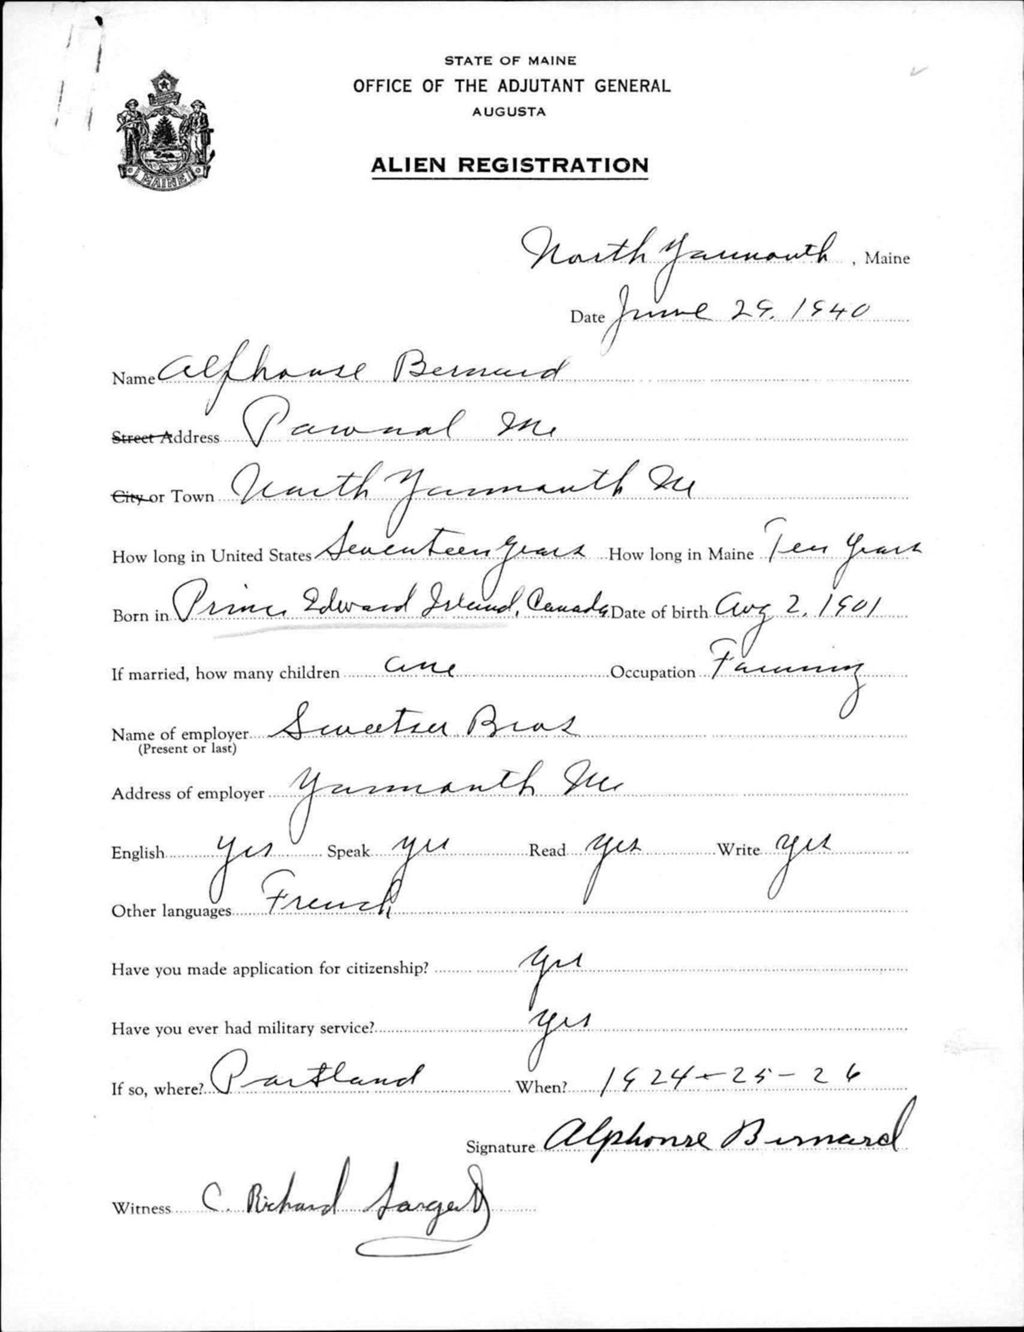 STATE OF MAINE
OFFICE OF THE ADJUTANT GENERAL
AUGUSTA
MAINE
ALIEN REGISTRATION
North Yarmouth, Maine
Date June 29. 1940
Name Alfhonse Bernard
Street Address Pawnal Me
City or Town North Yarmouth Me
How long in United States Seventeen Years How long in Maine Ten Years
Born in Prince Edward Island, Canada Date of birth Aug 2, 1901
If married, how many children one Occupation Farming
Name of employer Sweetser Bros
(Present or last)
Address of employer Yarmouth Me
English Yes Speak yes Read yes Write yes
Other languages French
Have you made application for citizenship? Yes
Have you ever had military service? Yes
If so, where? Portland When? 1924-25-26
Signature Alphonse Bernard
Witness C. Richard Sargent